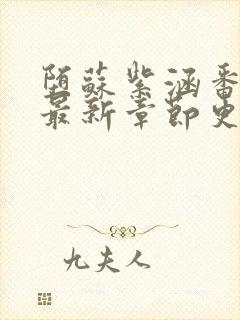 陌蘇紫涵番
最新章節史
九夫人